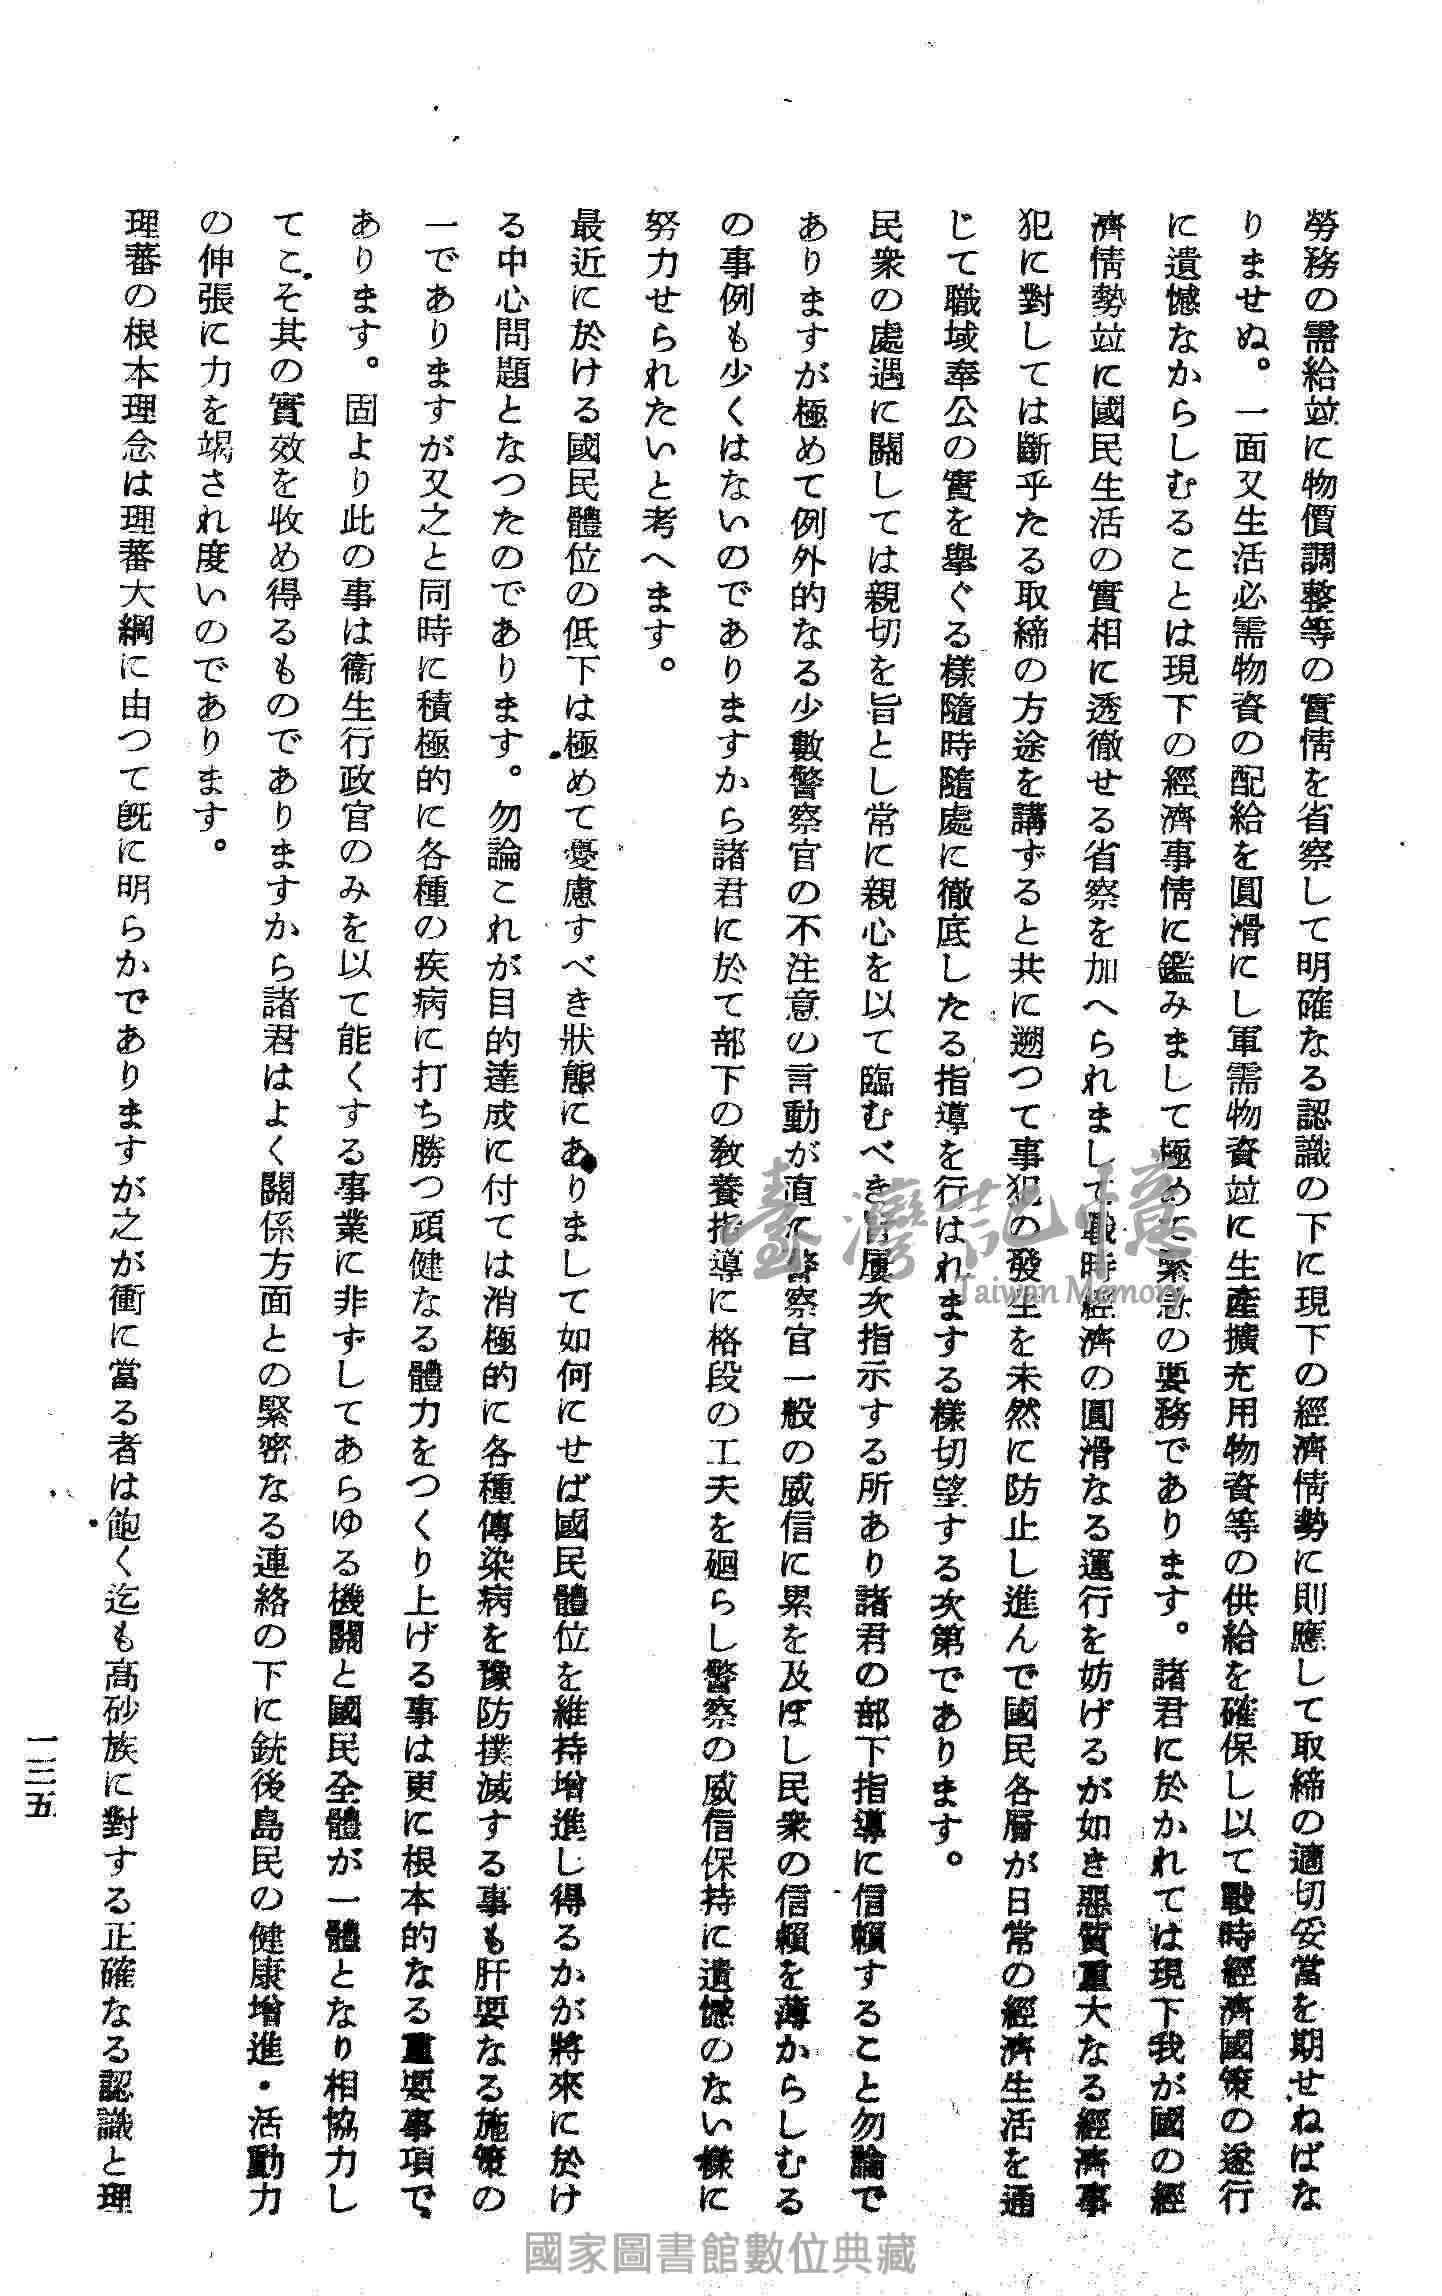 勞務の需給竝に物價調整等の實情を省察して明確なる認識の下に現下の經濟情勢に則應して取締の適切妥當を期せねばな
りませぬ。一面又生活必需物資の配給を圓滑にし軍需物資竝に生産擴充用物資等の供給を確保し以て戰時經濟國策の遂行
に遺憾なからしむることは現下の經濟事情に鑑みまして極めて緊急の要務であります。諸君に於かれては現下我が國の經
濟情勢竝に國民生活の實相に透徹せる省察を加へられまして戰時經濟の圓滑なる運行を妨げるが如き惡質重大なる經濟事
犯に對しては斷乎たる取締の方途を講ずると共に遡つて事犯の發生を未然に防止し進んで國民各層が日常の經濟生活を通
じて職域奉公の實を擧ぐる樣隨時隨處に徹底したる指導を行はれまする樣切望する次第であります。
民衆の處遇に關しては親切を旨とし常に親心を以て臨むべき旨屢次指示する所あり諸君の部下指導に信頼すること勿論で
ありますが極めて例外的なる少數警察官の不注意の言動が直に警察官一般の威信に累を及ぼし民衆の信頼を薄からしむる
の事例も少くはないのでありますから諸君に於て部下の敎養指導に格段の工夫を廻らし警察の威信保持に遺憾のない樣に
努力せられたいと考へます。
最近に於ける國民體位の低下は極めて憂慮すべき狀態にありまして如何にせば國民體位を維持增進し得るかが將來に於け
る中心問題となつたのであります。勿論これが目的達成に付ては消極的に各種傳染病を豫防撲滅する事も肝要なる施策の
一でありますが又之と同時に積極的に各種の疾病に打ち勝つ頑健なる體力をつくり上げる事は更に根本的なる重要事項で
あります。固より此の事は衞生行政官のみを以て能くする事業に非ずしてあらゆる機關と國民全體が一體となり相協力し
てこそ其の實效を收め得るものでありますから諸君はよく關係方面との緊密なる連絡の下に銃後島民の健康增進・活動力
の伸張に力を竭され度いのであります。
理蕃の根本理念は理蕃大綱に由つて既に明らかでありますが之が衝に當る者は飽く迄も高砂族に對する正確なる認識と理
一三五
臺灣記憶
Taiwan Memory
國家圖書館數位典藏